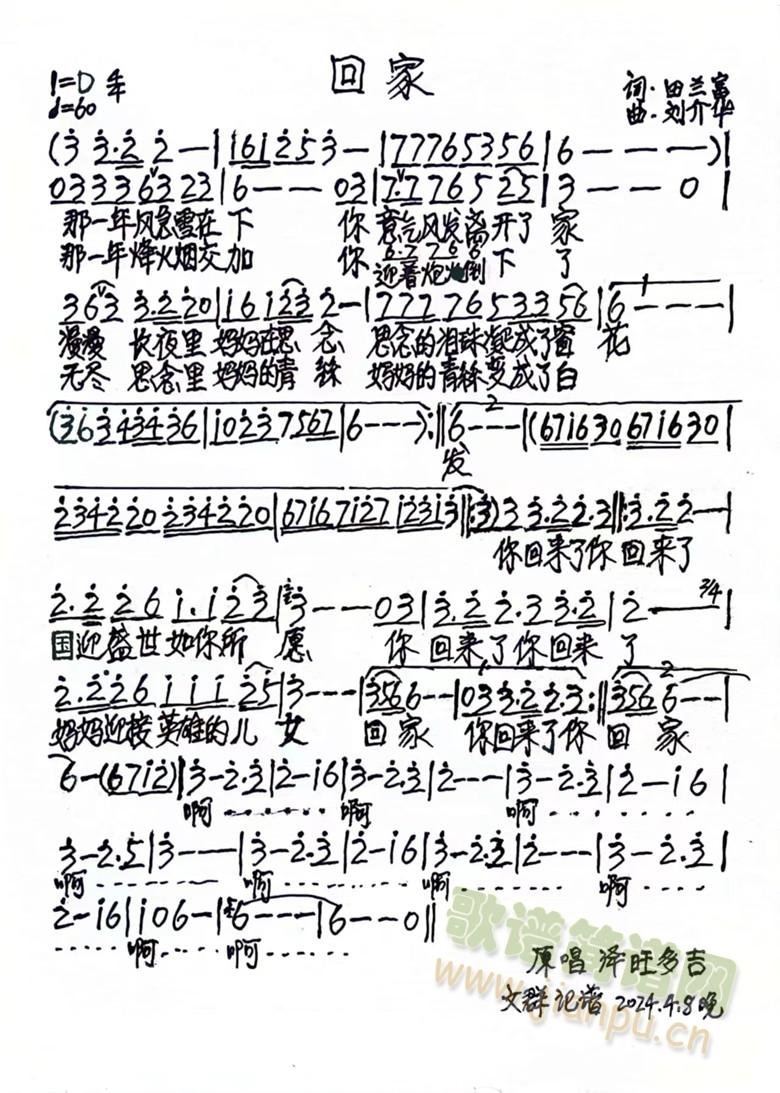 回家
1=D 4/4
♩=60
词·田兰富
曲·刘介华
(3 3·2 2—|161253—|77765356|6———)|
033363 23|6——03|7·776525|3——0|
那一年风急雪在下 你 意气风发离开了 家
那一年烽火烟交加 你 迎着炮火倒 下 了
363 3·220|161232—|77776533 56|6———|
漫漫 长夜里 妈妈在思 念 思念的泪珠凝成了窗 花
无尽 思念里 妈妈的青 丝 妈妈的青丝变成了白
(36343436|10237567|6———):||6———|(67163067 1630|
发
234220234220|6716712712313||:3)33·22·3||:3·22—|
你回来了你 回来了
2·226 1·123|3——03|3·22·33·2|2—— 3/4|
国迎盛世如你所 愿 你 回来了你回来 了
2·226 11125|3———|3566—|033·22·3:||3566—|
妈妈迎接英雄的儿 女 回 家 你回来了你 回 家
6—(6712)|3—2·3|2—16|3—2·3|2———|3—2·3|2—16|
啊 啊 啊
3—2·5|3———|3—2·3|2—16|3—2·3|2———|3—2·3|
啊 啊 啊 啊
2—16|106—|6———|6——0||
啊 啊
原唱 泽旺多吉
文群记谱 2024.4.8晚
歌谱简谱网
www.jianpu.cn